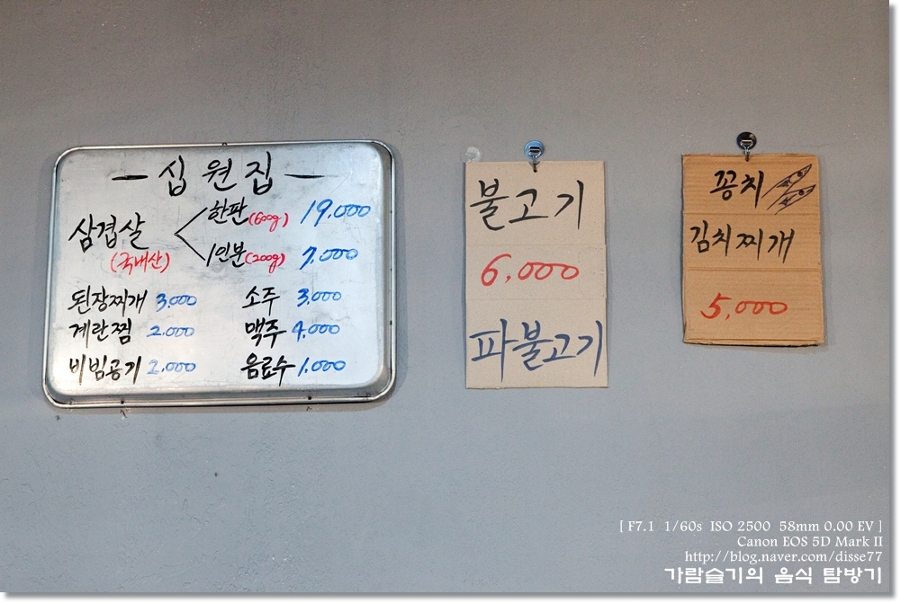 십원집
삼겹살 한판(600g) 19,000
(국내산) 1인분(200g) 7,000
된장찌개 3,000 소주 3,000
계란찜 2,000 맥주 4,000
비빔공기 2,000 음료수 1,000
불고기
6,000
파불고기
꽁치
김치찌개
5,000
[ F7.1 1/60s ISO 2500 58mm 0.00 EV ]
Canon EOS 5D Mark II
http://blog.naver.com/disse77
가람슬기의 음식 탐방기